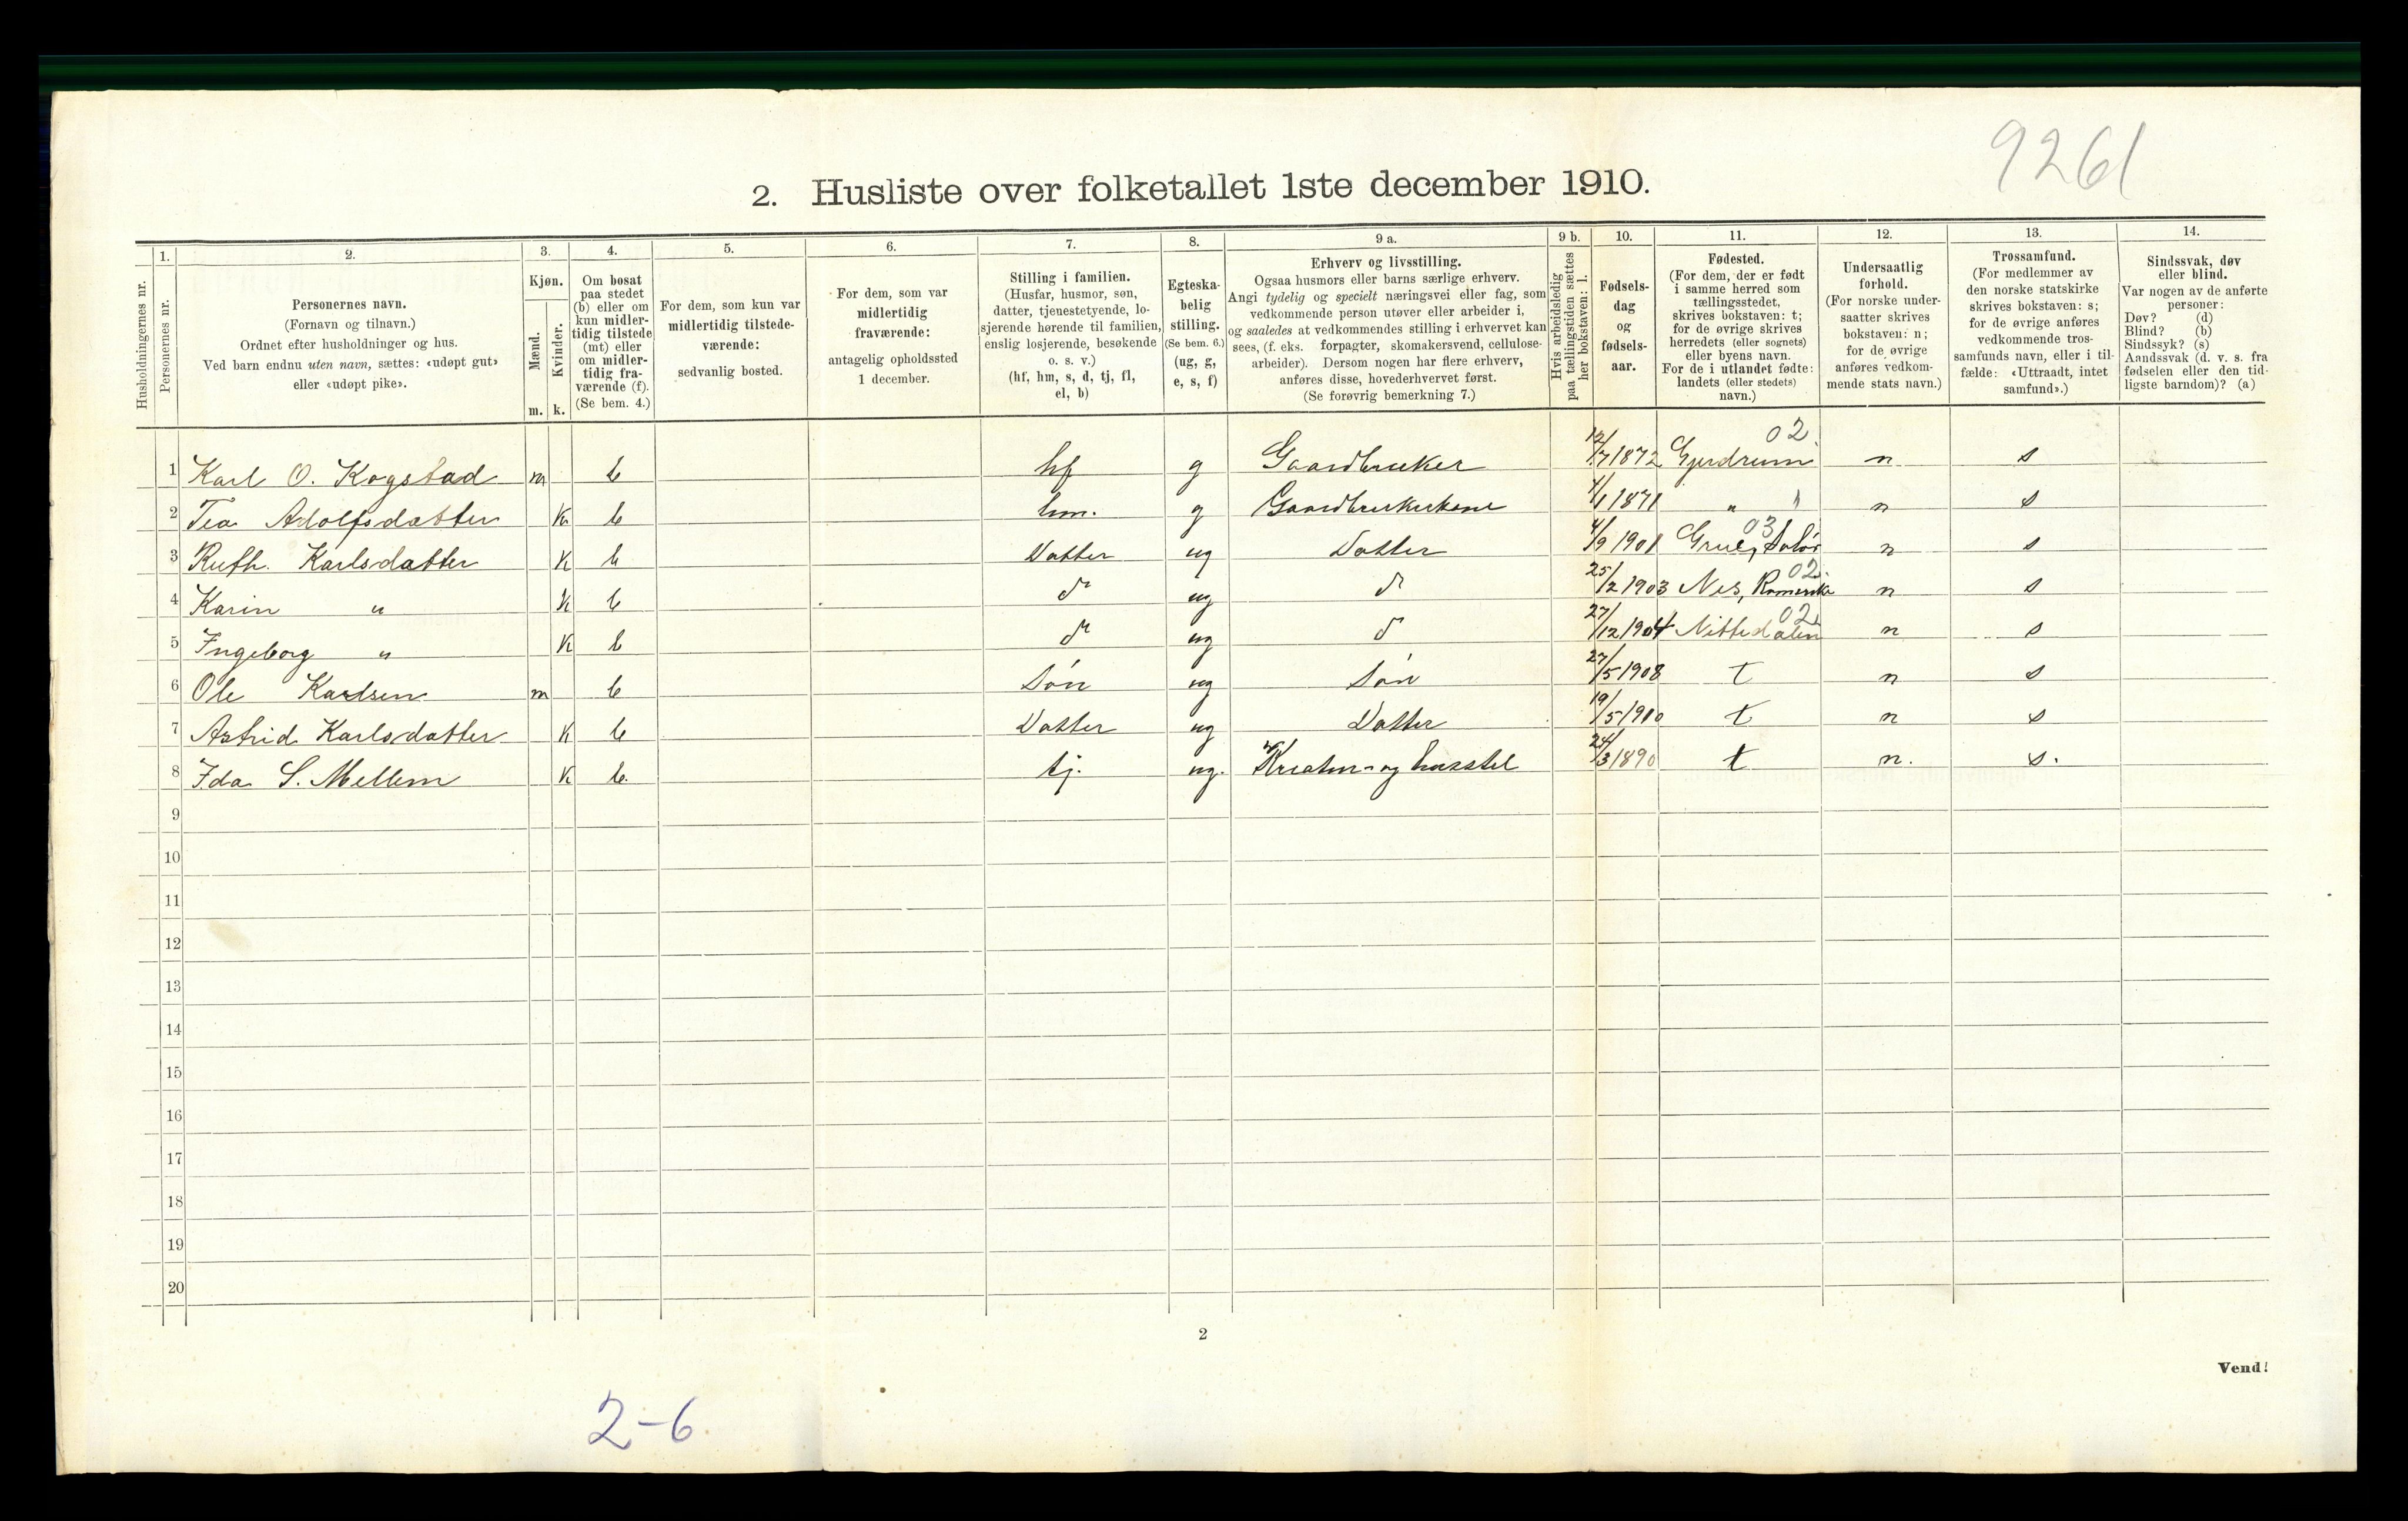 9261
2. Husliste over folketallet 1ste december 1910.
Husholdningernes nr.
1. Personernes nr.
2. Personernes navn.
(Fornavn og tilnavn.)
Ordnet efter husholdninger og hus.
Ved barn endnu uten navn, sættes: «udøpt gut»
eller «udøpt pike».
3. Kjøn.
Mænd. m.
Kvinder. k.
4. Om bosat
paa stedet
(b) eller om
kun midler-
tidig tilstede
(mt) eller
om midler-
tidig fra-
værende (f).
(Se bem. 4.)
5. For dem, som kun var
midlertidig tilstede-
værende:
sedvanlig bosted.
6. For dem, som var
midlertidig
fraværende:
antagelig opholdssted
1 december.
7. Stilling i familien.
(Husfar, husmor, søn,
datter, tjenestetyende, lo-
sjerende hørende til familien,
enslig losjerende, besøkende
o. s. v.)
(hf, hm, s, d, tj, fl,
el, b)
8. Egteska-
belig
stilling.
(Se bem. 6.)
(ug, g,
e, s, f)
9 a. Erhverv og livsstilling.
Ogsaa husmors eller barns særlige erhverv.
Angi tydelig og specielt næringsvei eller fag, som
vedkommende person utøver eller arbeider i,
og saaledes at vedkommendes stilling i erhvervet kan
sees, (f. eks. forpagter, skomakersvend, cellulose-
arbeider). Dersom nogen har flere erhverv,
anføres disse, hovederhvervet først.
(Se forøvrig bemerkning 7.)
9 b. Hvis arbeidsledig
paa tællingstiden sættes
her bokstaven: l.
10. Fødsels-
dag
og
fødsels-
aar.
11. Fødested.
(For dem, der er født
i samme herred som
tællingsstedet,
skrives bokstaven: t;
for de øvrige skrives
herredets (eller sognets)
eller byens navn.
For de i utlandet fødte:
landets (eller stedets)
navn.)
12. Undersaatlig
forhold.
(For norske under-
saatter skrives
bokstaven: n;
for de øvrige
anføres vedkom-
mende stats navn.)
13. Trossamfund.
(For medlemmer av
den norske statskirke
skrives bokstaven: s;
for de øvrige anføres
vedkommende tros-
samfunds navn, eller i til-
fælde: «Uttraadt, intet
samfund».)
14. Sindssvak, døv
eller blind.
Var nogen av de anførte
personer:
Døv? (d)
Blind? (b)
Sindssyk? (s)
Aandssvak (d. v. s. fra
fødselen eller den tid-
ligste barndom)? (a)
02
1 Karl O. Kogstad m b hf g Gaardbruker 12/7 1872 Gjerdrum n s
2 Tea Adolfsdatter k b hm. g Gaardbrukerkone 4/1 1871 " " n s
03
3 Ruth Karlsdatter k b Datter ug Datter 4/9 1901 Grue, Solør n s
02
4 Karin " k b do ug do 25/2 1903 Nes, Romerike n s
02
5 Ingeborg " k b do ug do 27/12 1904 Nittedalen n s
6 Ole Karlsen m b Søn ug Søn 27/5 1908 t n s
7 Astrid Karlsdatter k b Datter ug Datter 19/5 1910 t n s
8 Ida S. Mellem k b. tj. ug. Kreatur- og husstel 24/3 1890 t n. s.
9
10
11
12
13
14
15
16
17
18
19
20
2
Vend!
2-6